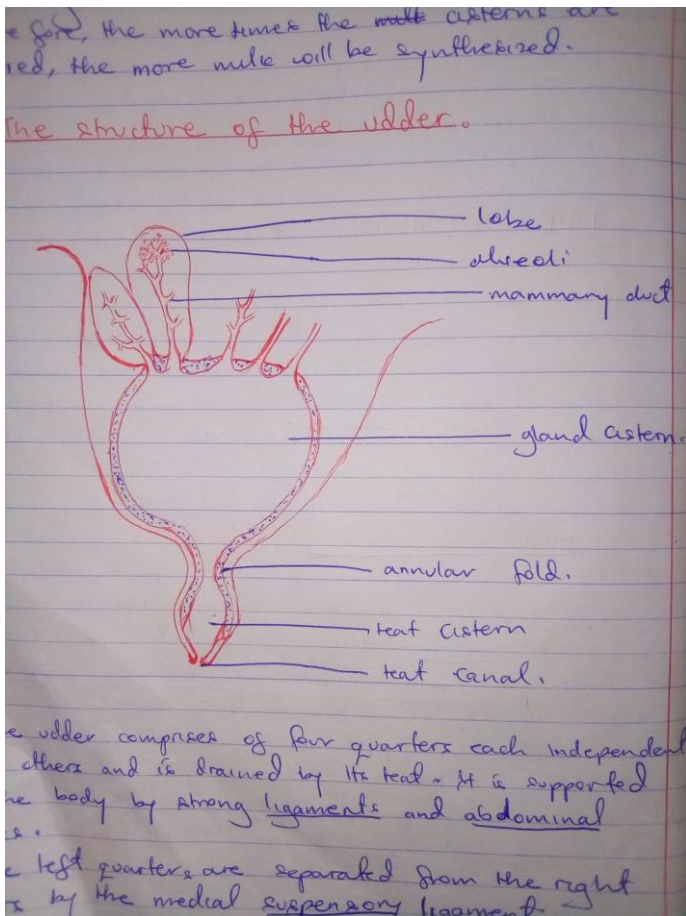 e fore, the more times the cisterns are
ied, the more milk will be synthesized.
The structure of the udder.
lobe
alveoli
mammary duct
gland cistern.
annular fold.
teat cistern
teat canal.
e udder comprises of four quarters each independent
others and is drained by its teat. It is supported
he body by strong ligaments and abdominal
s.
e left quarters are separated from the right
s by the medical suspensory ligament.